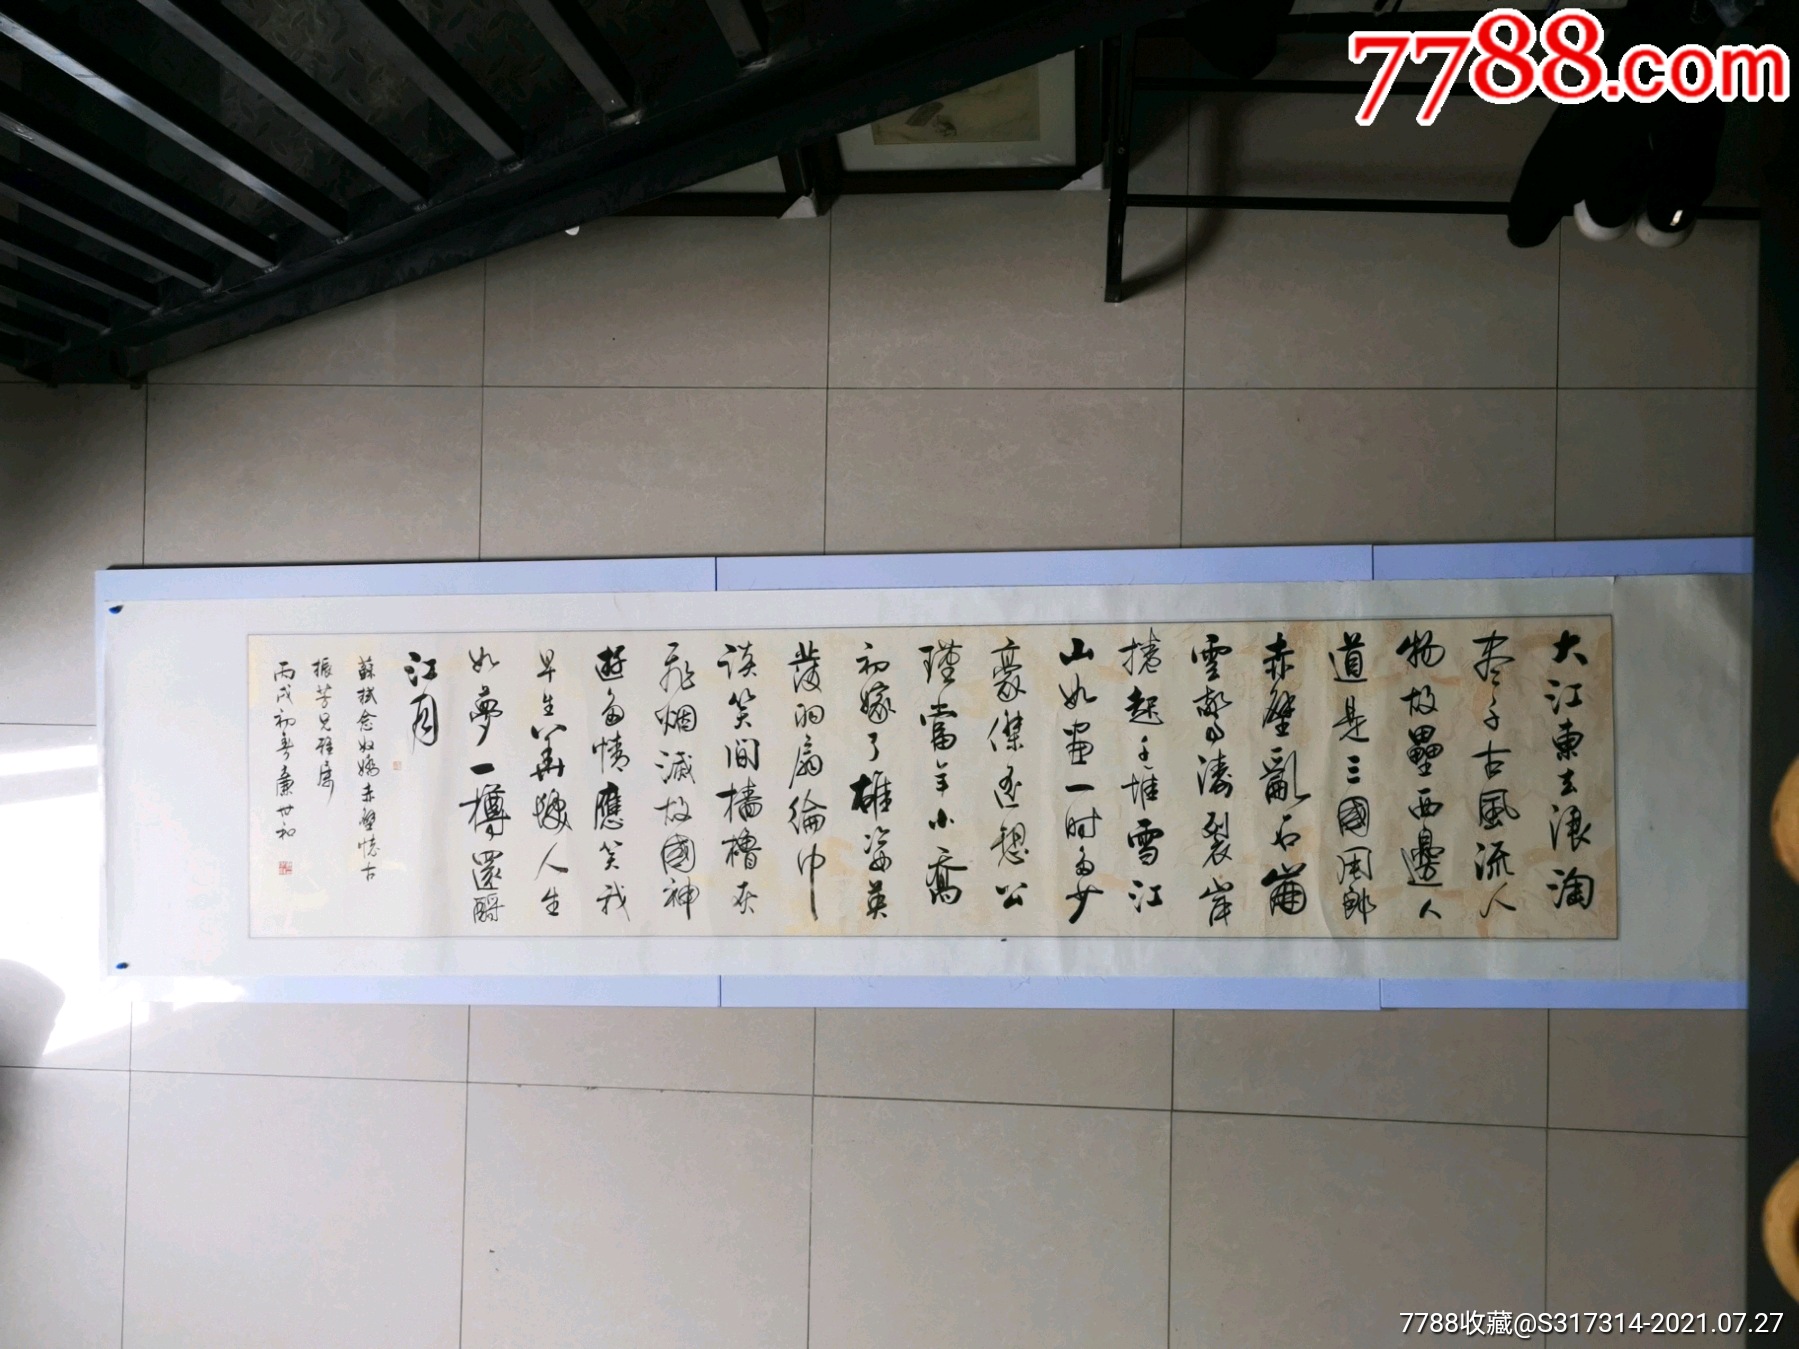 7788.com
大江東去浪淘
盡千古風流人
物故壘西邊人
道是三國周郎
赤壁亂石崩
雲驚濤裂岸
捲起千堆雪江
山如畫一時多少
豪傑遙想公
瑾當年小喬
初嫁了雄姿英
發羽扇綸巾
談笑間檣櫓灰
飛烟滅故國神
遊多情應笑我
早生華髮人生
如夢一樽還酹
江月
蘇軾念奴嬌赤壁懷古
振芳兄雅屬
丙戌初春廉世和
7788收藏@S317314-2021.07.27